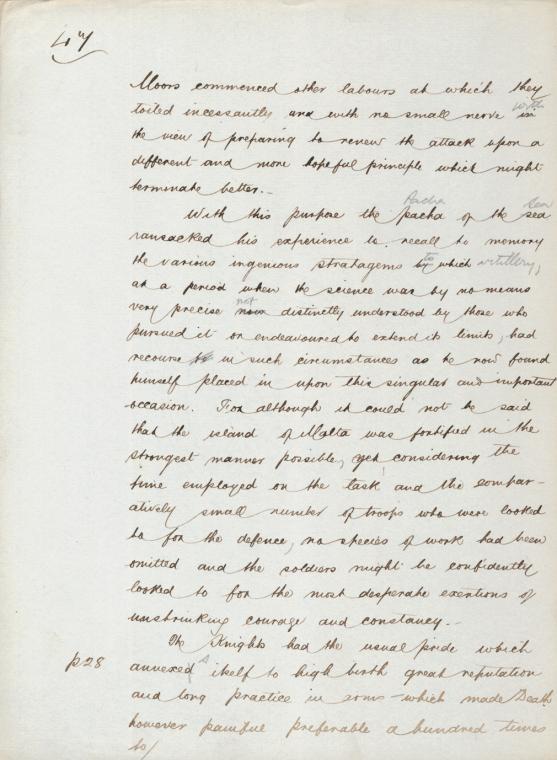 47
Moors commenced other labours at which they
with
toiled incessantly and with no small nerve in
the view of preparing to renew the attack upon a
different and more hopeful principle which might
terminate better. -
Pacha Sea
With this purpose the pacha of the sea
ransacked his experience to recall to memory
the various ingenious stratagems to by which artillery,
at a period when the science was by no means
not
very precise nor distinctly understood by those who
pursued it or endeavoured to extend its limits, had
recourse in such circumstances as he now found
himself placed in upon this singular and important
occasion. For although it could not be said
that the island of Malta was fortified in the
strongest manner possible, yet considering the
time employed on the task and the compar-
atively small number of troops who were looked
to for the defence, no species of work had been
omitted and the soldiers might be confidently
looked to for the most desperate exertions of
unshrinking courage and constancy. -
The Knights had the usual pride which
p28 annexed itself to high birth great reputation
and long practice in arms which made Death
however painful preferable a hundred times
to/